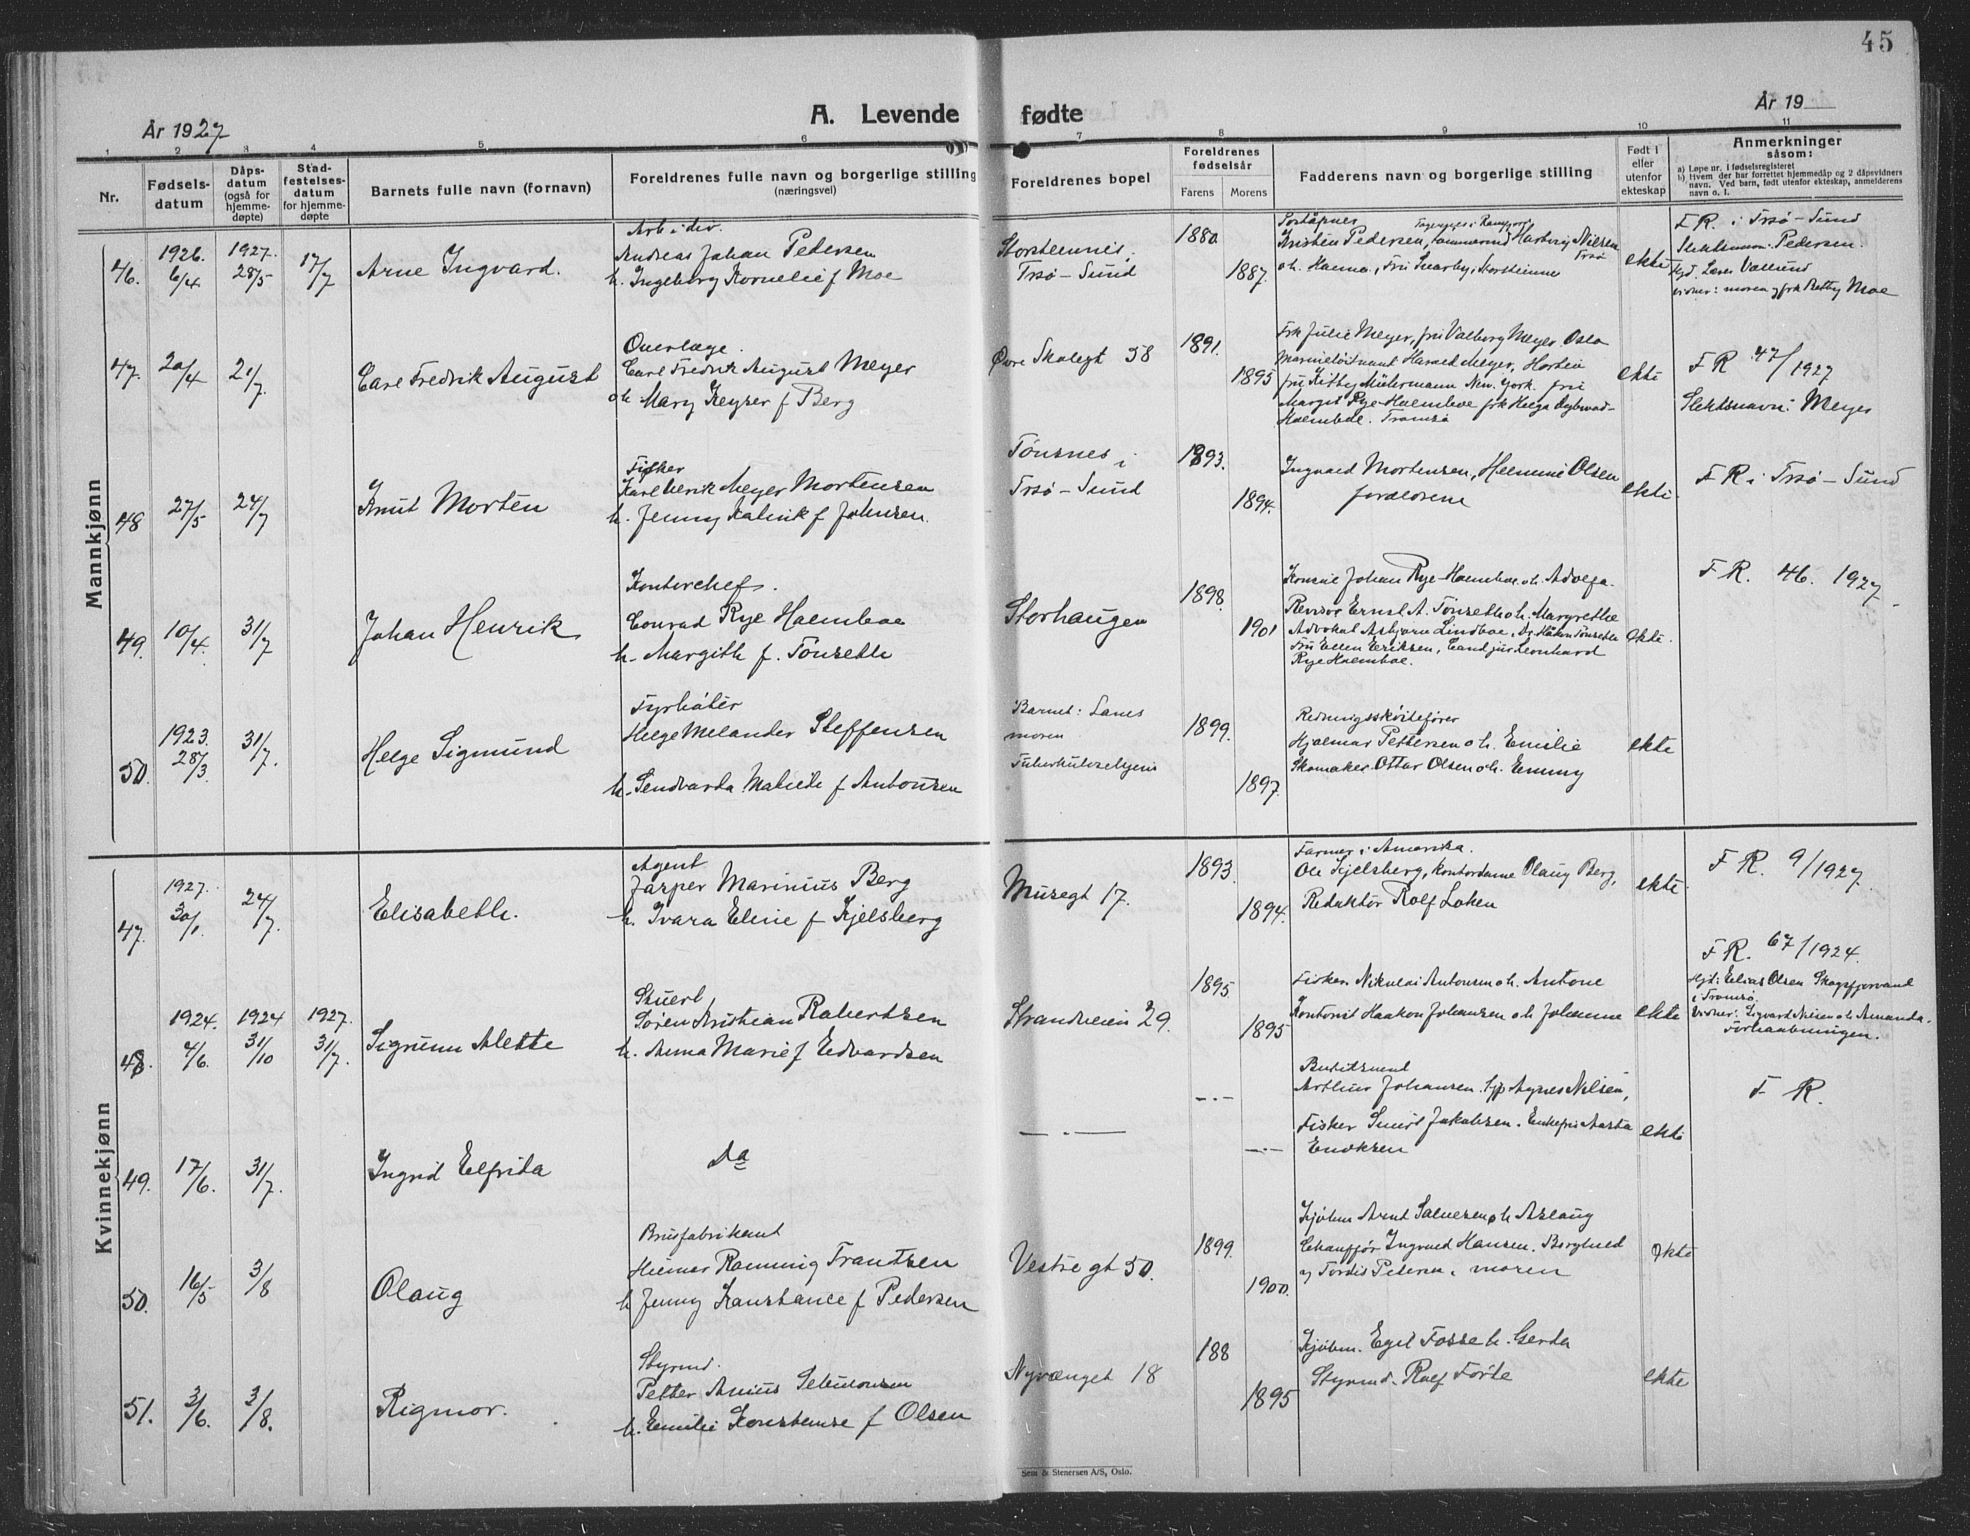 45
A. Levende fødte
År 1927
År 19
1 2 3 4 5 6 7 8 9 10 11
Nr.
Fødsels-
datum
Dåps-
datum
(også for
hjemme-
døpte)
Stad-
festelses-
datum
for hjemme-
døpte
Barnets fulle navn (fornavn)
Foreldrenes fulle navn og borgerlige stilling
(næringsvei)
Foreldrenes bopel
Foreldrenes
fødselsår
Farens Morens
Fadderens navn og borgerlige stilling
Født i
eller
utenfor
ekteskap
Anmerkninger
såsom:
a) Løpe nr. i fødselsregisteret
b) Hvem der har forrettet hjemmedåp og 2 dåpsvidners
navn. Ved barn, født utenfor ekteskap, anmelderens
navn o. l.
Mannkjønn
46. 1926. 6/4 1927. 28/5 17/7
Arne Ingvard.
Arb i div.
Andreas Johan Pedersen
h. Ingeborg Kornelie f Moe
Storsteinnes,
Trsø-Sund
1880.
1887.
Kristen Pedersen, Nilsen
Trsø
o h. Hanna, Fru Snarby, Storsteinnes
ekte
F R. i Trsø-Sund
Pedersen.
Hjd. Lærer
vidner: moren og frk Moe
47. 20/4 21/7
Carl Fredrik August
Overlæge.
Carl Fredrik August Meyer
oh Mary Keyser f Berg
Øvre Skolegt 58
1891.
1895
Frk Julie Meyer, fru Valborg Meyer Oslo
Marineløitnant Harald Meyer, Horten
fru Kitty Mütermann New. York. fru
Margit Rye-Holmboe frk Helga Dybwad-
Holmboe. Tromsø
ekte
F R 47/1927
Slektsnavn: Meyer
48 27/5 24/7
Knut Morten
Fisker
Karl Meyer Mortensen
h. Jenny Kalrik f Johnsen.
Tønsnes i
Trsø-Sund
1893.
1894.
Ingvald Mortensen, Helmine Olsen
foreldrene
ekte
F R i Trsø-Sund
49. 10/4. 31/7
Johan Henrik
Kontorchef.
Conrad Rye Holmboe
h. Margith f. Tønseth
Storhaugen
1898.
1901
Konsul Johan Rye-Holmboe o h. Advofa.
Revisor Ernst A. Tønseth o h. Margrethe
Advokat Asbjørn Lindboe, Dr. Håkon Tønseth
Fru Ellen Eriksen, Cand jur Leonhard
Rye Holmboe.
ekte.
F R. 46. 1927.
50. 1923. 28/3. 31/7.
Helge Sigmund
Fyrbøter
Helge Melander Steffensen
h. f Antonsen
Barnet: Lanes
moren
Tuberkulosehjem
1899.
1897.
Redningsskøitefører
Hjalmar Pettersen o h. Emilie
Skomaker Ottar Olsen o h. Emmy
ekte
Kvinnekjønn
47. 1927. 30/1. 24/7.
Elisabeth.
Agent
Jasper Marinius Berg
h. Ivara Eline f Kjelsberg
Musegt 17.
1893.
1894.
Farmer i Amerika.
Ole Kjelsberg, kontordame Olaug Berg,
Redaktør Rolf Loken
ekte.
F R. 9/1927.
48. 1924. 4/6. 1924 31/10 1927. 31/7.
Sigrunn Alette
Stuert
Søren Kristian Robertsen
h. Anna Marie f Edvardsen
Strandveien 29.
1895.
1895
Fisker Nikolai Antonsen o h. Antone
Kontorist Haakon Johansen o h Johanne
ekte
F R. 67/1924.
Hjd: Elias Olsen Skogsfjorvand
i Tromsø.
Vidner: Sigvard Nilsen o h. Amanda
Forhaabningen.
49. 17/6. 31/7.
Ingrid Elfrida
Do
— . —
— . —
— . —
Arthur Johansen. Agnes Nilsen,
Fisker Jakobsen. Enkefru Aasta
Enoksen
ekte
F R.
50. 16/5 3/8
Olaug
Brusfabrikant
Hilmar Ramming Frantsen
h Jenny Konstance f Pedersen
Vestregt 50.
1899.
1900.
Kjøbm Arnt Salvesen o h Aslaug
Chauffør Ingvald Hansen. Borghild
og Tordis Petersen, moren
ekte
51. 3/6. 3/8.
Rigmor.
Styrmd.
Petter Anius
h. Emilie Konstanse f Olsen
Nyvænget 18
188
1895
Kjøbm. Egil Fosse h. Gerda
Styrmd. Rolf Førte
ekte
Sem & Stenersen A/S, Oslo.